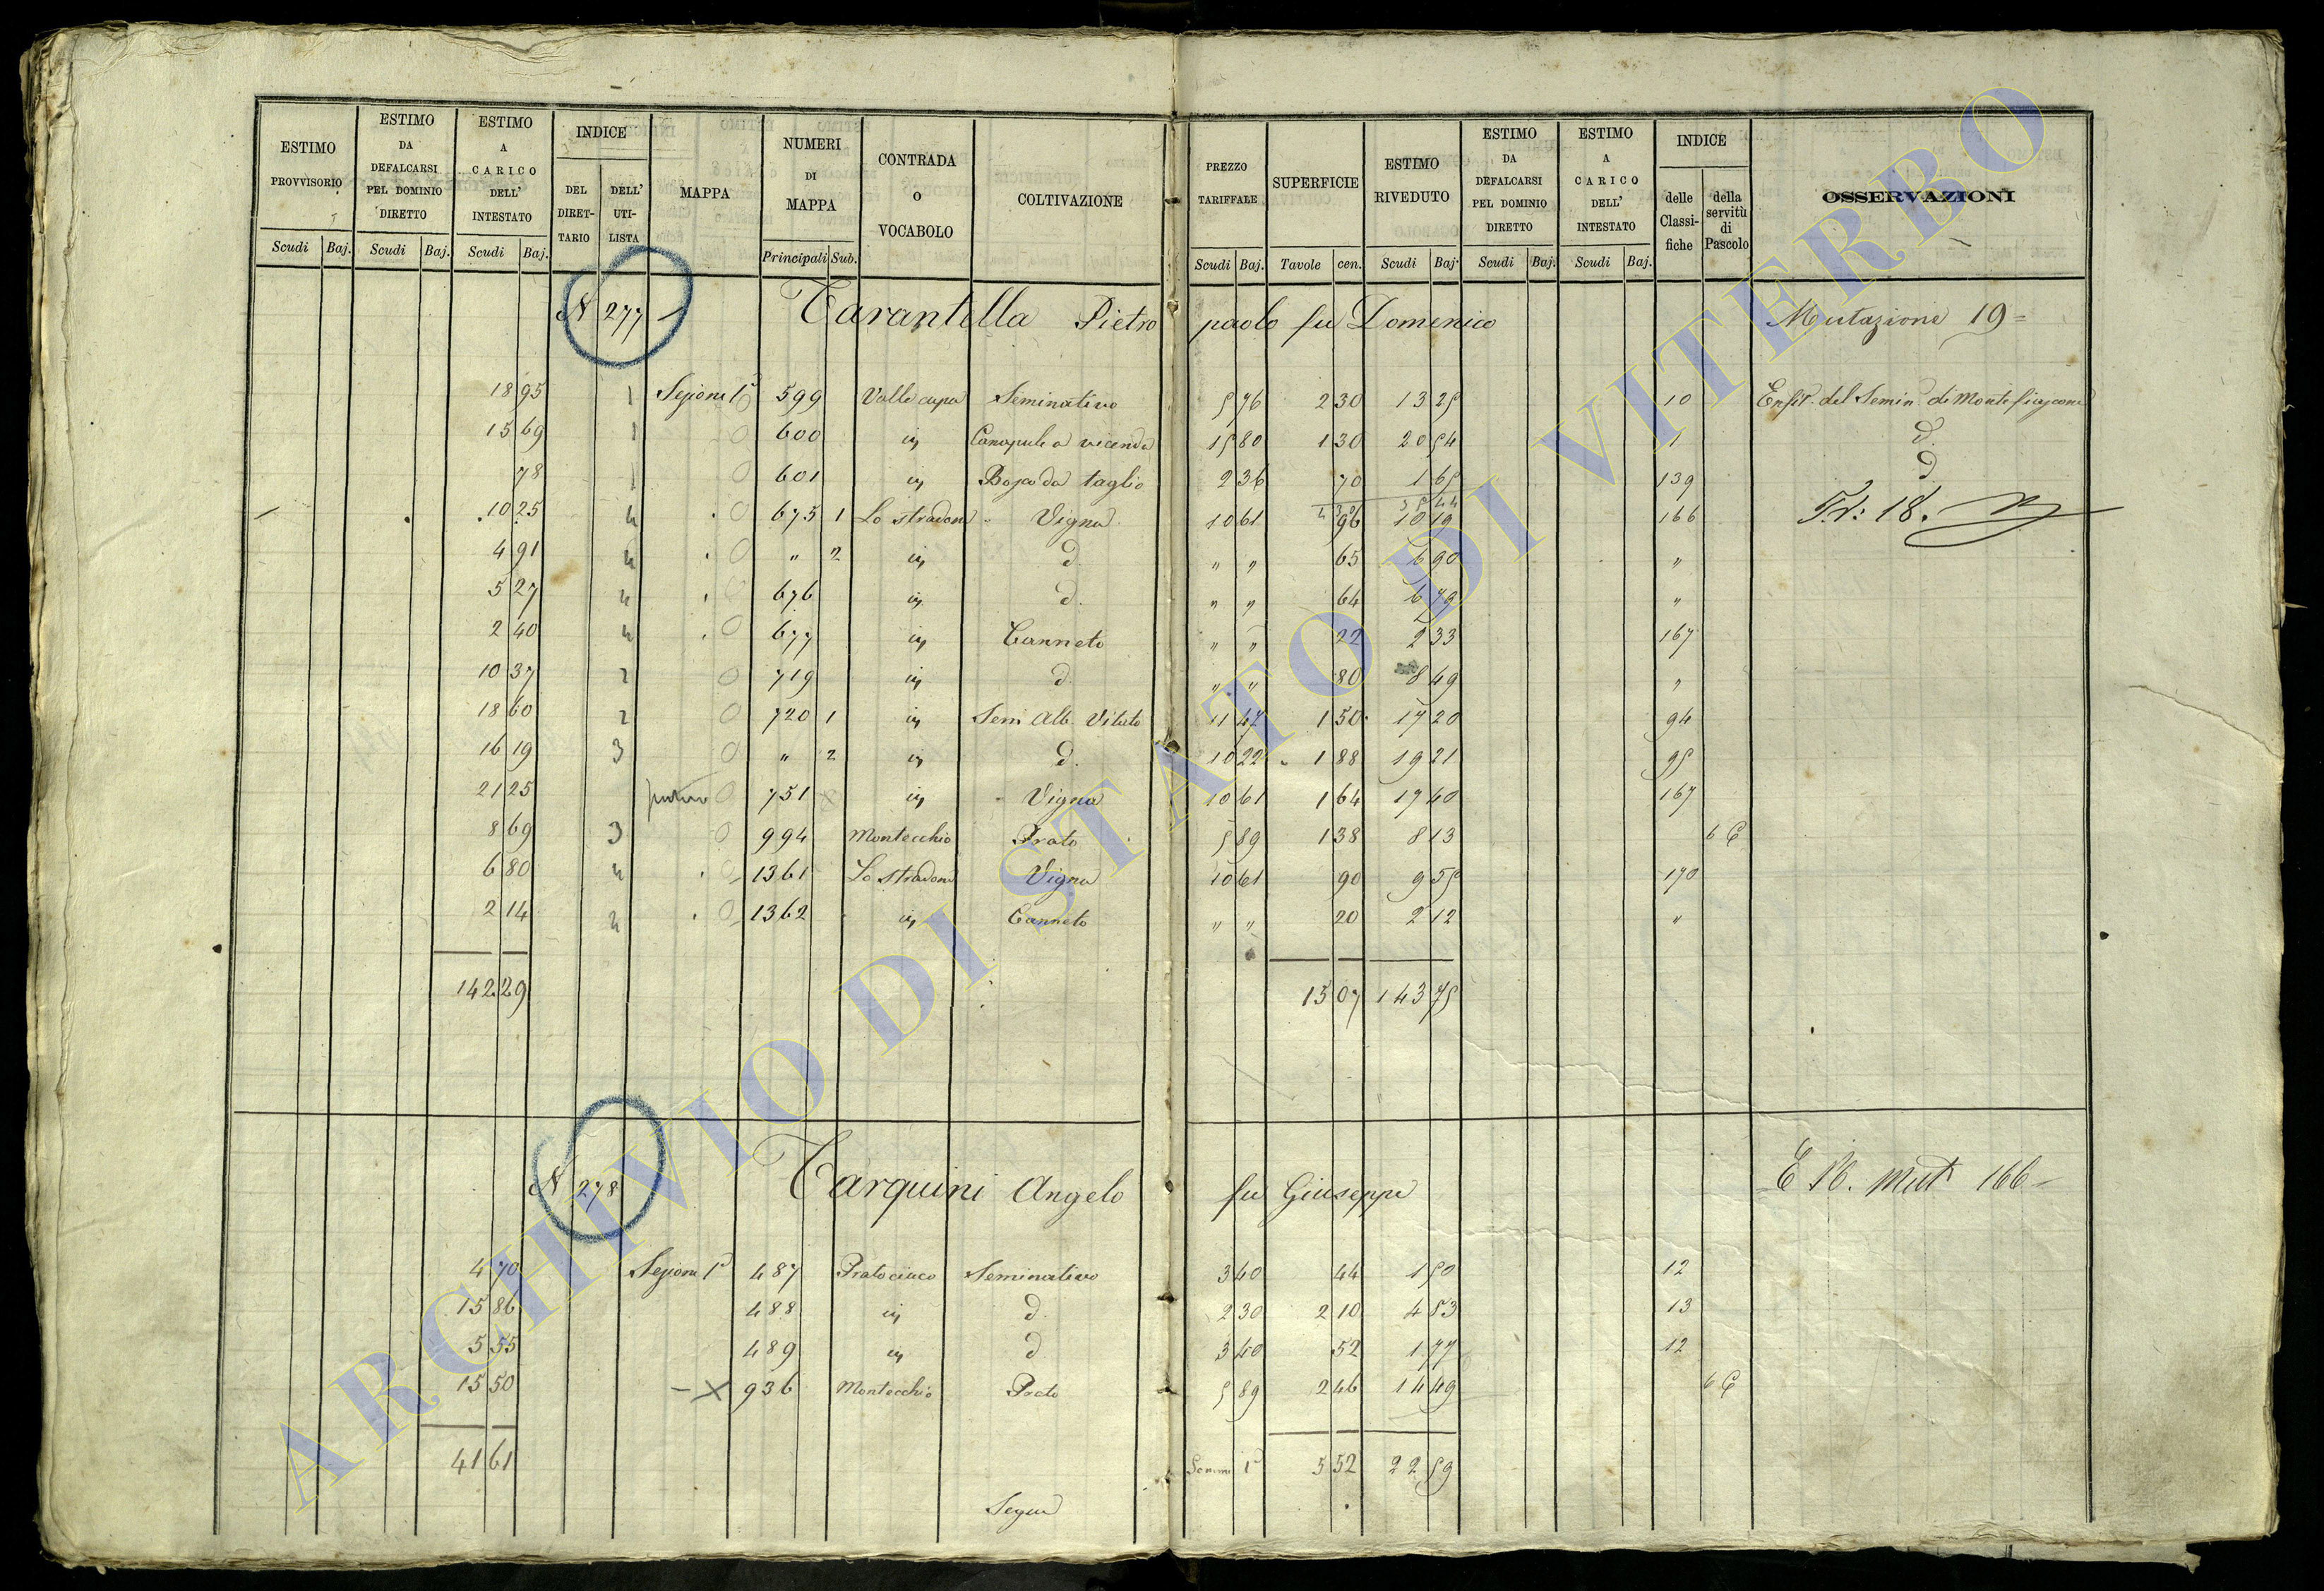 ESTIMO PROVVISORIO
Scudi Baj.
ESTIMO DA DEFALCARSI PEL DOMINIO DIRETTO
Scudi Baj.
ESTIMO A CARICO DELL' INTESTATO
Scudi Baj.
INDICE
DEL DIRET-TARIO
DELL' UTI-LISTA
MAPPA
NUMERI DI MAPPA
Principali Sub.
CONTRADA O VOCABOLO
COLTIVAZIONE
PREZZO TARIFFALE
Scudi Baj.
SUPERFICIE
Tavole cen.
ESTIMO RIVEDUTO
Scudi Baj.
ESTIMO DA DEFALCARSI PEL DOMINIO DIRETTO
Scudi Baj.
ESTIMO A CARICO DELL' INTESTATO
Scudi Baj.
INDICE
delle Classi-fiche
della servitù di Pascolo
OSSERVAZIONI
N 277 Tarantella Pietro paolo fu Domenico Mutazione 19
18 95 1 Sezione 1ª 599 Valle cupa Seminativo 5 76 2 30 13 25 10
15 69 1 600 in Canapule a vicenda 15 80 1 30 20 54 1 d.
78 1 601 in Bosco da taglio 2 36 70 1 65 139 d
10 25 4 675 1 Lo stradone Vigna 10 61 96 10 19 166
4 91 4 " 2 in d. " " 65 6 90 "
5 27 4 676 in d. " " 64 6 79 "
2 40 4 677 in Canneto " " 22 2 33 167
10 37 2 719 in d. " " 80 8 49 "
18 60 2 720 1 in Sem Alb Vitato 11 47 1 50 17 20 94
16 19 3 " 2 in d. 10 22 1 88 19 21 95
21 25 751 in Vigna 10 61 1 64 17 40 167
8 69 3 994 Montecchio Prato 5 89 1 38 8 13
6 80 4 1361 Lo stradone Vigna 10 61 90 9 55 170
2 14 4 1362 in Canneto " " 20 2 12 "
142 29 15 07 143 75
N 278 Tarquini Angelo fu Giuseppe 166
4 70 Sezione 1ª 487 Pratocinco Seminativo 3 40 44 1 50 12
15 86 488 in d. 2 30 2 10 4 83 13
5 55 489 in d 3 40 52 1 77 12
15 50 X 936 Montecchio Prato 5 89 2 46 14 49
41 61 5 52 22 59
Segue
ARCHIVIO DI STATO DI VITERBO